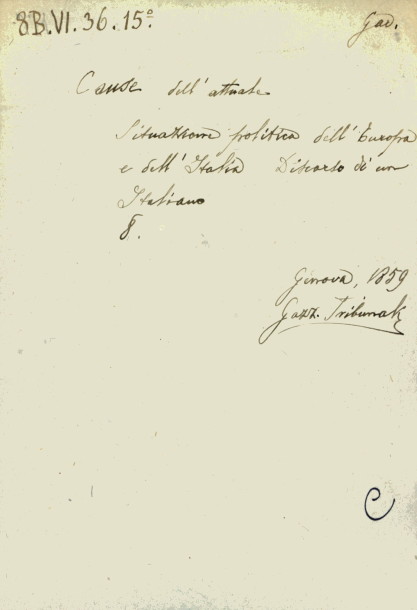 8B.VI.36.15°.
Gad.
Cause dell'attuale
Situazione politica dell'Europa
e dell'Italia Discorso di un
Italiano
8.
Genova, 1859
Gazz. Tribunali
C